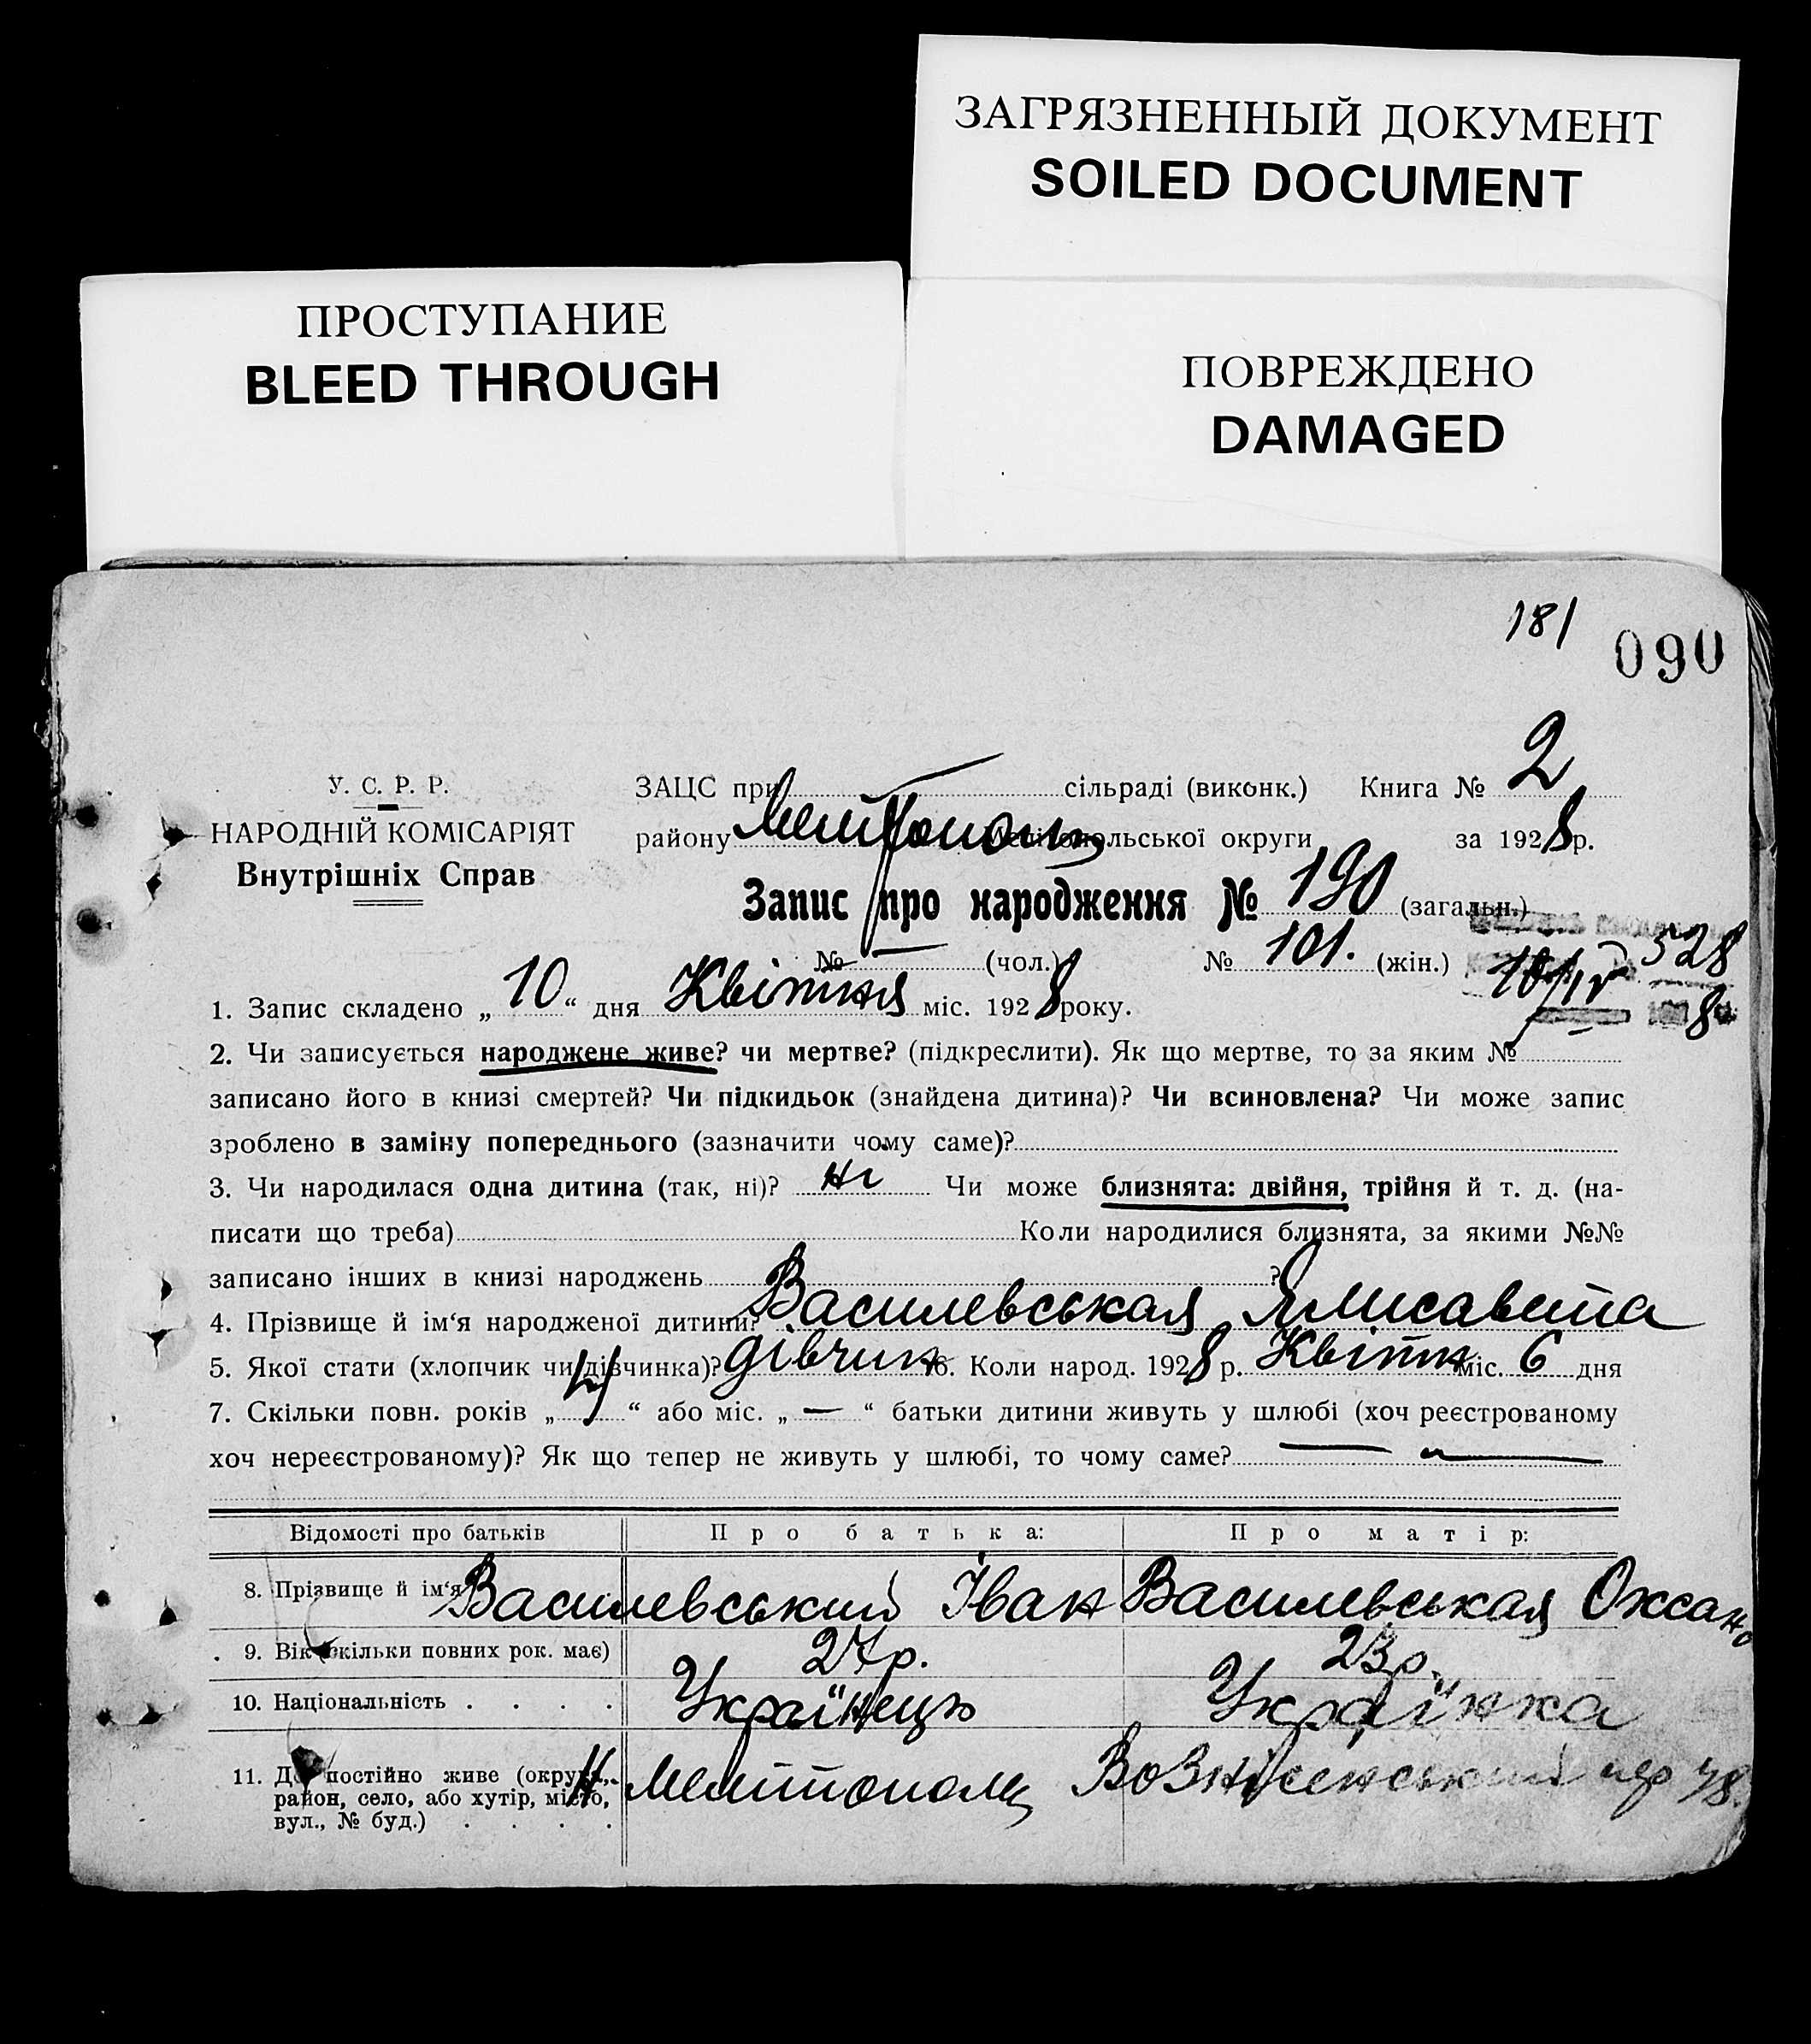 ЗАГРЯЗНЕННЫЙ ДОКУМЕНТ
SOILED DOCUMENT
ПРОСТУПАНИЕ
BLEED THROUGH
ПОВРЕЖДЕНО
DAMAGED
181
090
У. С. Р. Р.
НАРОДНІЙ КОМІСАРІЯТ
Внутрішніх Справ
ЗАЦС при сільраді (виконк.) Книга № 2
району Мелітопольської округи за 1928 р.
Запис про народження № 190 (загальн.)
№ — (чол.) № 101. (жін.)
528
1. Запис складено „ 10 “ дня Квітня міс. 1928 року.
2. Чи записується народжене живе? чи мертве? (підкреслити). Як що мертве, то за яким №
записано його в книзі смертей? Чи підкидьок (знайдена дитина)? Чи всиновлена? Чи може запис
зроблено в заміну попереднього (зазначити чому саме)?
3. Чи народилася одна дитина (так, ні)? ні Чи може близнята: двійня, трійня й т. д. (на-
писати що треба) Коли народилися близнята, за якими №№
записано інших в книзі народжень ?
4. Прізвище й ім‘я народженої дитини? Василевськая
5. Якої стати (хлопчик чи дівчинка)? дівчин 6. Коли народ. 1928 р. Квітн міс. 6 дня
7. Скільки повн. років „ 4 “ або міс. „ — “ батьки дитини живуть у шлюбі (хоч реєстрованому
хоч нереєстрованому)? Як що тепер не живуть у шлюбі, то чому саме? — —
Відомості про батьків Про батька: Про матір:
8. Прізвище й ім‘я Василевський Іван Василевськая Оксана
9. Вік (скільки повних рок. має) 27р. 23р.
10. Національність . . . . Українець Українка
11. Де постійно живе (округа, район, село, або хутір, місто, вул., № буд.) . . . . Вознесенський пер 48.